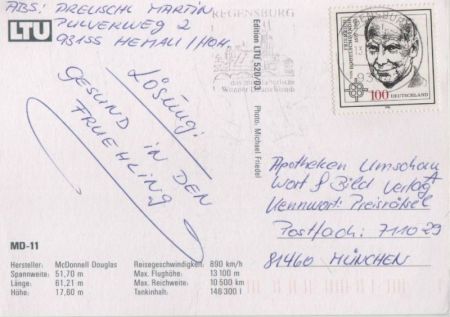 ABS: PREUSCHL MARTIN
PULVERWEG 2
93155 HEMAU/HOH.
LTU
REGENSBURG
Lösung:
GESUND IN DEN
FRUEHLING
Edition LTU 520/03 Photo: Michael Friedel
100 DEUTSCHLAND
Apotheken Umschau
Wort & Bild Verlag
Kennwort: Preisrätsel
Postfach: 711029
81460 MÜNCHEN
MD-11
Hersteller: McDonnell Douglas Reisegeschwindigkeit: 890 km/h
Spannweite: 51,70 m Max. Flughöhe: 13 100 m
Länge: 61,21 m Max. Reichweite: 10 500 km
Höhe: 17,60 m Tankinhalt: 148 300 l